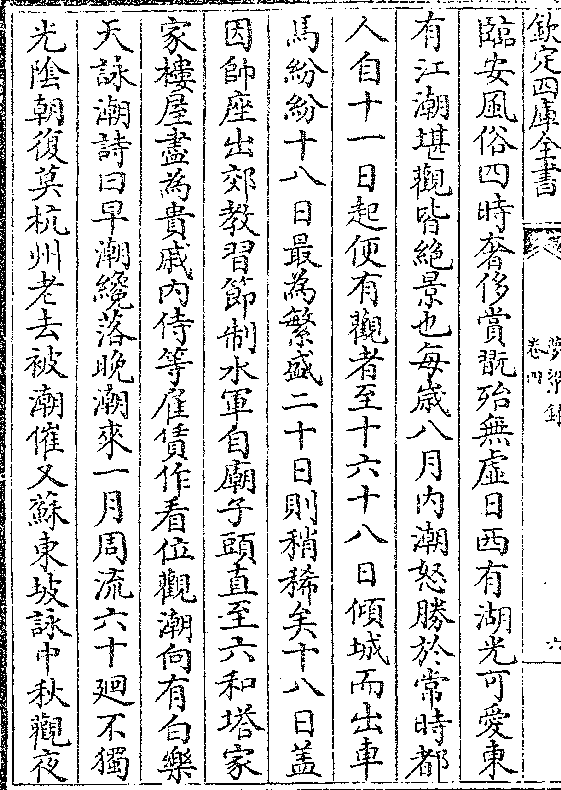 欽定四庫全書
夢粱錄
卷四
六
臨安風俗四時奢侈賞翫殆無虛日西有湖光可愛東
有江潮堪觀皆絕景也每歲八月內潮怒勝於常時都
人自十一日起便有觀者至十六十八日傾城而出車
馬紛紛十八日最為繁盛二十日則稍稀矣十八日盖
因帥座出郊教習節制水軍自廟子頭直至六和塔家
家樓屋盡為貴戚內侍等雇賃作看位觀潮向有白樂
天詠潮詩曰早潮纔落晚潮來一月周流六十廻不獨
光陰朝復莫杭州老去被潮催又蘇東坡詠中秋觀夜